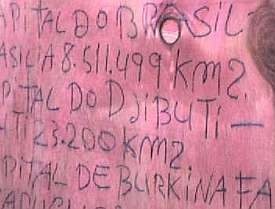 APITAL DO BRASIL-
ASILIA 8.511.499 KM2.
PITAL DO DJIBUTI-
-TI 23.200 KM2
PITAL DE BURKINA FA